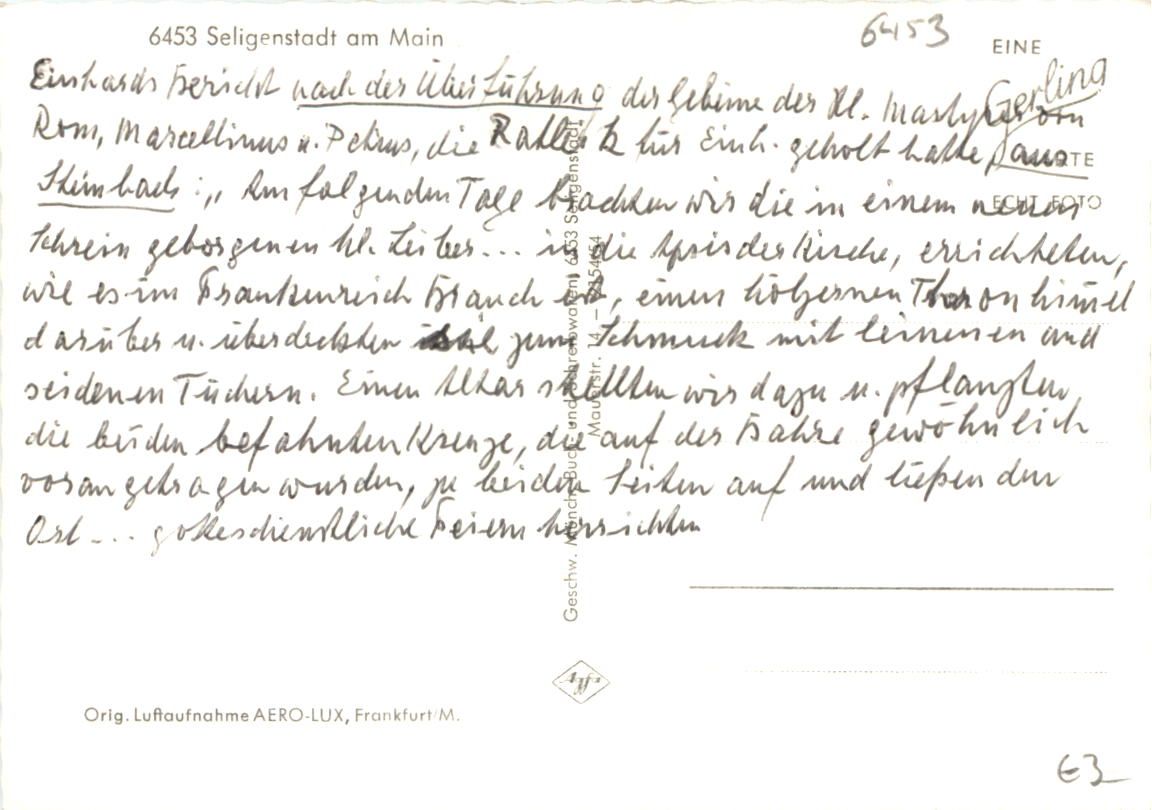 6453 Seligenstadt am Main
6453
EINE
Gerling
Einhards Bericht nach der Überführung der Gebeine der Hl. Martyrer von
Rom, Marcellinus u. Petrus, die Ratleik für Einh. geholt hatte, aus
Steinbach: „Am folgenden Tage brachten wir die in einem neuen
ECHT FOTO
Schrein geborgenen hl. Leiber... in die Apsis der Kirche, errichteten,
wie es im Frankenreich Brauch ist, einen hölzernen Thronhimmel
darüber u. überdeckten zum Schmuck mit leinenen und
seidenen Tüchern. Einen Altar stellten wir dazu u. pflanzten
die beiden befahnten Kreuze, die auf der Bahre gewöhnlich
vorangetragen wurden, zu beiden Seiten auf und ließen den
Ort ... gottesdienstliche Feiern herrichten
Geschw. Münch, Buch und Schreibwaren, 6453 Seligenstadt
Mauerstr. 14 –
Agfa
Orig. Luftaufnahme AERO-LUX, Frankfurt/M.
€3